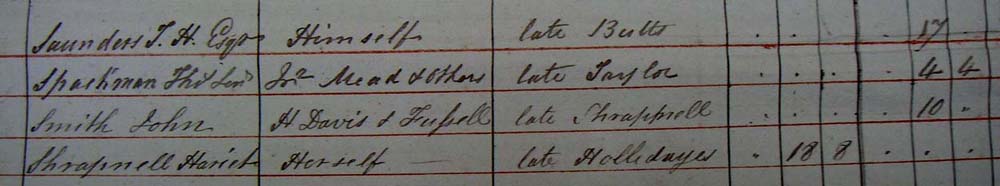 Saunders T. H. Esqr Himself late Butts . . . . 17 .
Spackman Thos Senr Jno Mead & Others late Taylor . . . . 4 4
Smith John H Davis & Fussell late Shrapnell . . . . 10 .
Shrapnell Hariet Herself — late Hollidayes . 18 8 . . .